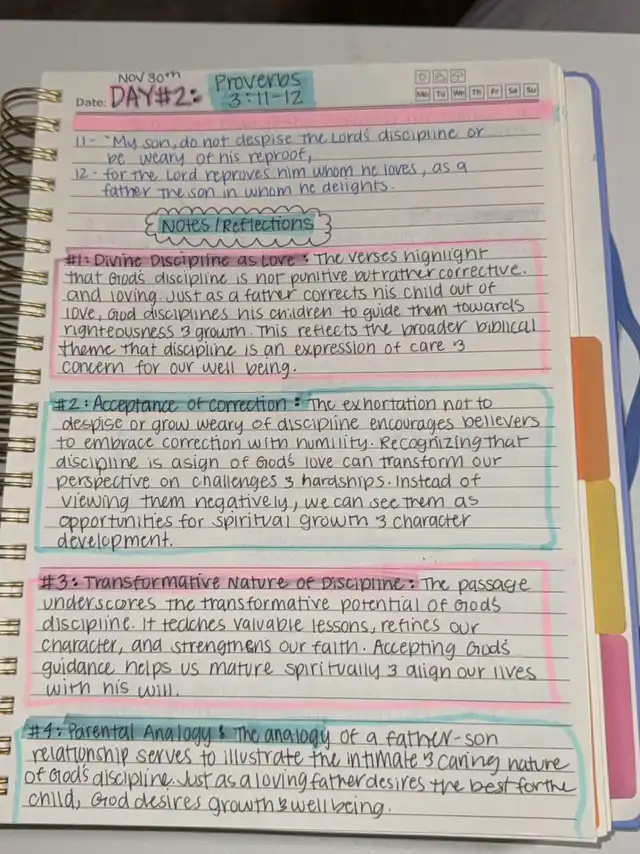 Nov 30th
Date: DAY#2: Proverbs
3:11-12
Mo Tu We Th Fr Sa Su
11- "My son, do not despise the Lord's discipline or
be weary of his reproof,
12- for the Lord reproves him whom he loves, as a
father the son in whom he delights.
Notes/Reflections
#1: Divine Discipline as Love: The verses highlight
that God's discipline is not punitive but rather corrective.
and loving. Just as a father corrects his child out of
love, God disciplines his children to guide them towards
righteousness & growth. This reflects the broader biblical
theme that discipline is an expression of care &
concern for our well being.
#2: Acceptance of correction: The exhortation not to
despise or grow weary of discipline encourages believers
to embrace correction with humility. Recognizing that
discipline is a sign of God's love can transform our
perspective on challenges & hardships. Instead of
viewing them negatively, we can see them as
opportunities for spiritual growth & character
development.
#3: Transformative Nature of Discipline: The passage
underscores the transformative potential of God's
discipline. It teaches valuable lessons, refines our
character, and strengthens our faith. Accepting God's
guidance helps us mature spiritually & align our lives
with his will.
#4: Parental Analogy: The analogy of a father-son
relationship serves to illustrate the intimate & caring nature
of God's discipline. Just as a loving father desires the best for the
child, God desires growth & well being.